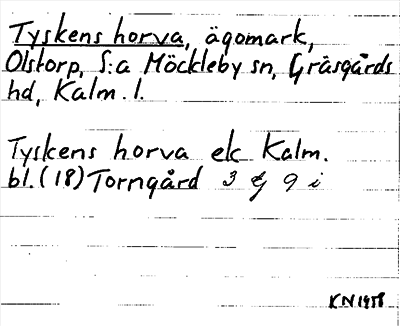 Tyskens horva, ägomark,
Olstorp, S:a Möckleby sn, Gräsgårds
hd, Kalm. l.
Tyskens horva ek Kalm.
bl. (18) Torngård 3 G 9 i
KN 1958